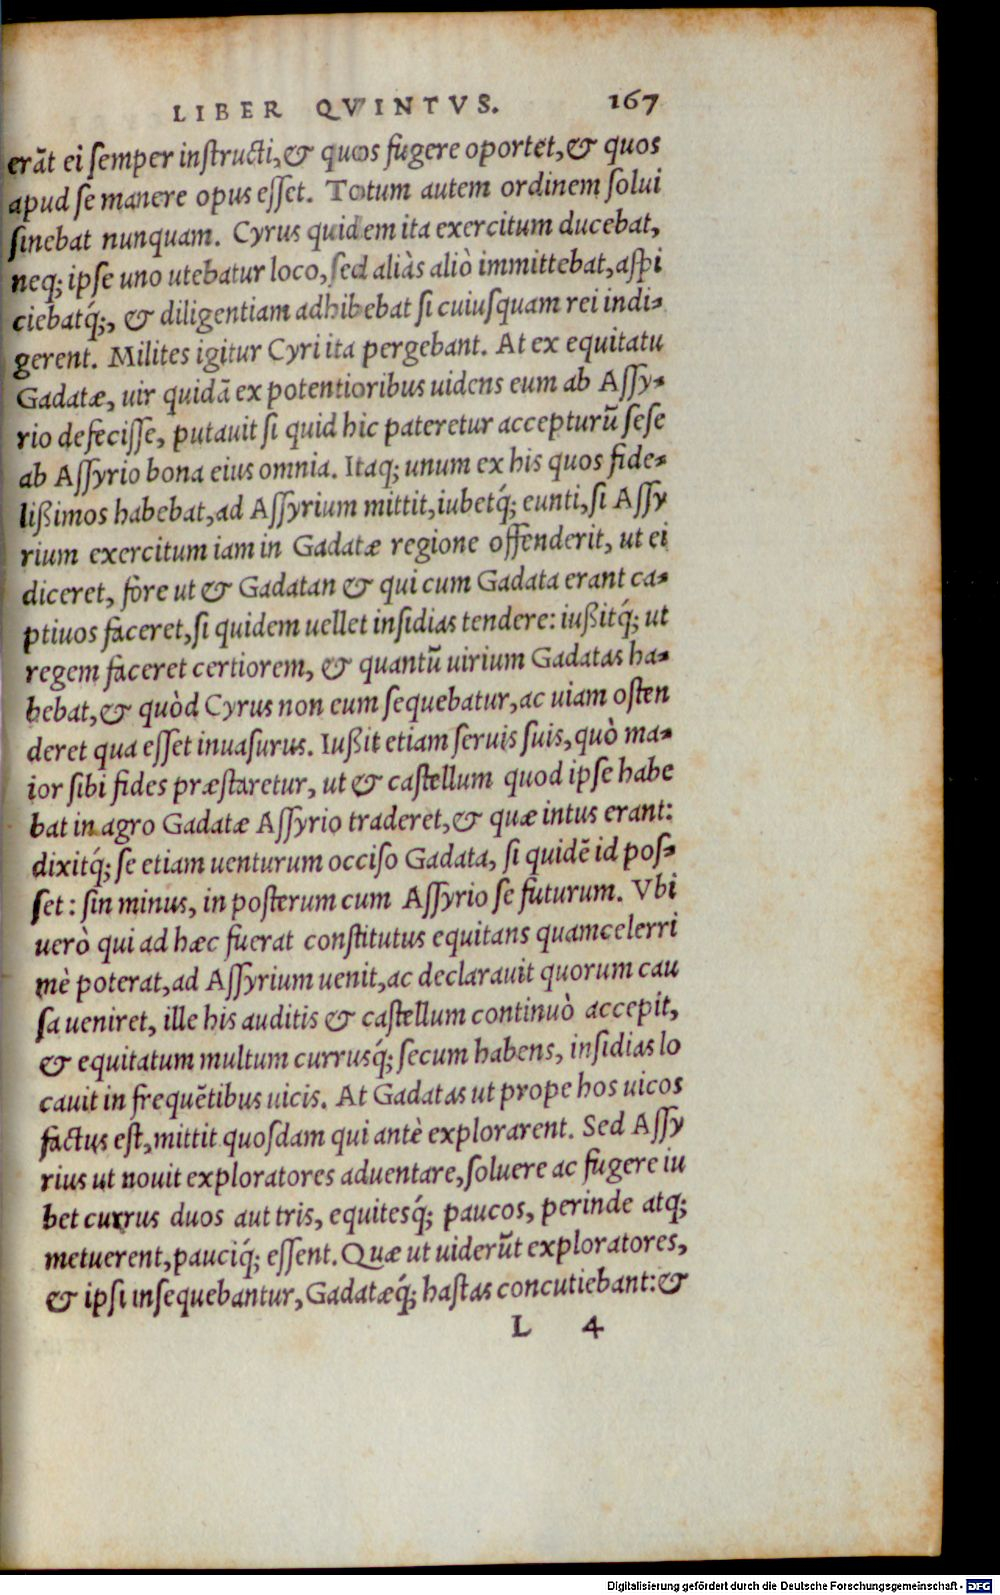 LIBER QVINTVS. 167
erāt ei ſemper inſtructi, & quos fugere oportet, & quos
apud ſe manere opus eſſet. Totum autem ordinem ſolui
ſinebat nunquam. Cyrus quidem ita exercitum ducebat,
neq; ipſe uno utebatur loco, ſed aliàs aliò immittebat, aſpi
ciebatq́;, & diligentiam adhibebat ſi cuiuſquam rei indi-
gerent. Milites igitur Cyri ita pergebant. At ex equitatu
Gadatæ, uir quidā ex potentioribus uidens eum ab Aſſy-
rio defeciſſe, putauit ſi quid hic pateretur accepturū ſeſe
ab Aſſyrio bona eius omnia. Itaq; unum ex his quos fide-
lißimos habebat, ad Aſſyrium mittit, iubetq́; eunti, ſi Aſſy
rium exercitum iam in Gadatæ regione offenderit, ut ei
diceret, fore ut & Gadatan & qui cum Gadata erant ca-
ptiuos faceret, ſi quidem uellet inſidias tendere: iußitq́; ut
regem faceret certiorem, & quantū uirium Gadatas ha-
bebat, & quòd Cyrus non eum ſequebatur, ac uiam oſten
deret qua eſſet inuaſurus. Iußit etiam ſeruis ſuis, quò ma-
ior ſibi fides præſtaretur, ut & caſtellum quod ipſe habe
bat in agro Gadatæ Aſſyrio traderet, & quæ intus erant:
dixitq́; ſe etiam uenturum occiſo Gadata, ſi quidē id poſ-
ſet: ſin minus, in poſterum cum Aſſyrio ſe futurum. Vbi
uerò qui ad hæc fuerat conſtitutus equitans quamcelerri
mè poterat, ad Aſſyrium uenit, ac declarauit quorum cau
ſa ueniret, ille his auditis & caſtellum continuò accepit,
& equitatum multum currusq́; ſecum habens, inſidias lo
cauit in frequētibus uicis. At Gadatas ut prope hos uicos
factus eſt, mittit quoſdam qui antè explorarent. Sed Aſſy
rius ut nouit exploratores aduentare, ſoluere ac fugere iu
bet currus duos aut tris, equitesq́; paucos, perinde atq;
metuerent, pauciq́; eſſent. Quæ ut uiderūt exploratores,
& ipſi inſequebantur, Gadatæq́; haſtas concutiebant: &
L 4
Digitalisierung gefördert durch die Deutsche Forschungsgemeinschaft - DFG